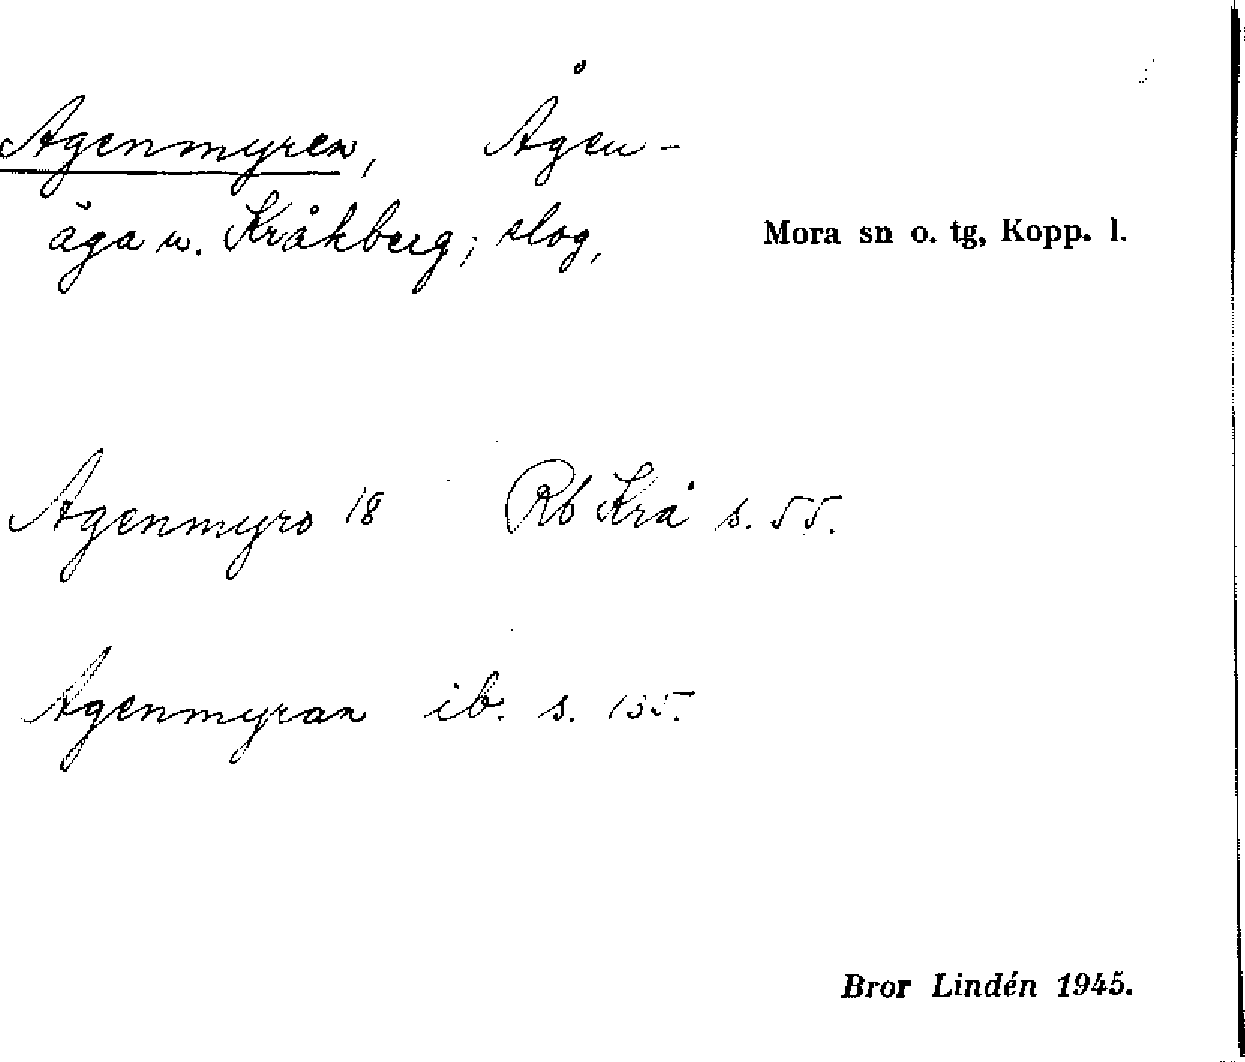 Agenmyren, Ågen-
äga u. Kråkberg; slog,
Mora sn o. tg, Kopp. l.
Agenmyro 18 Rb Krå s. 55.
Agenmyran ib. s. 135.
Bror Lindén 1945.